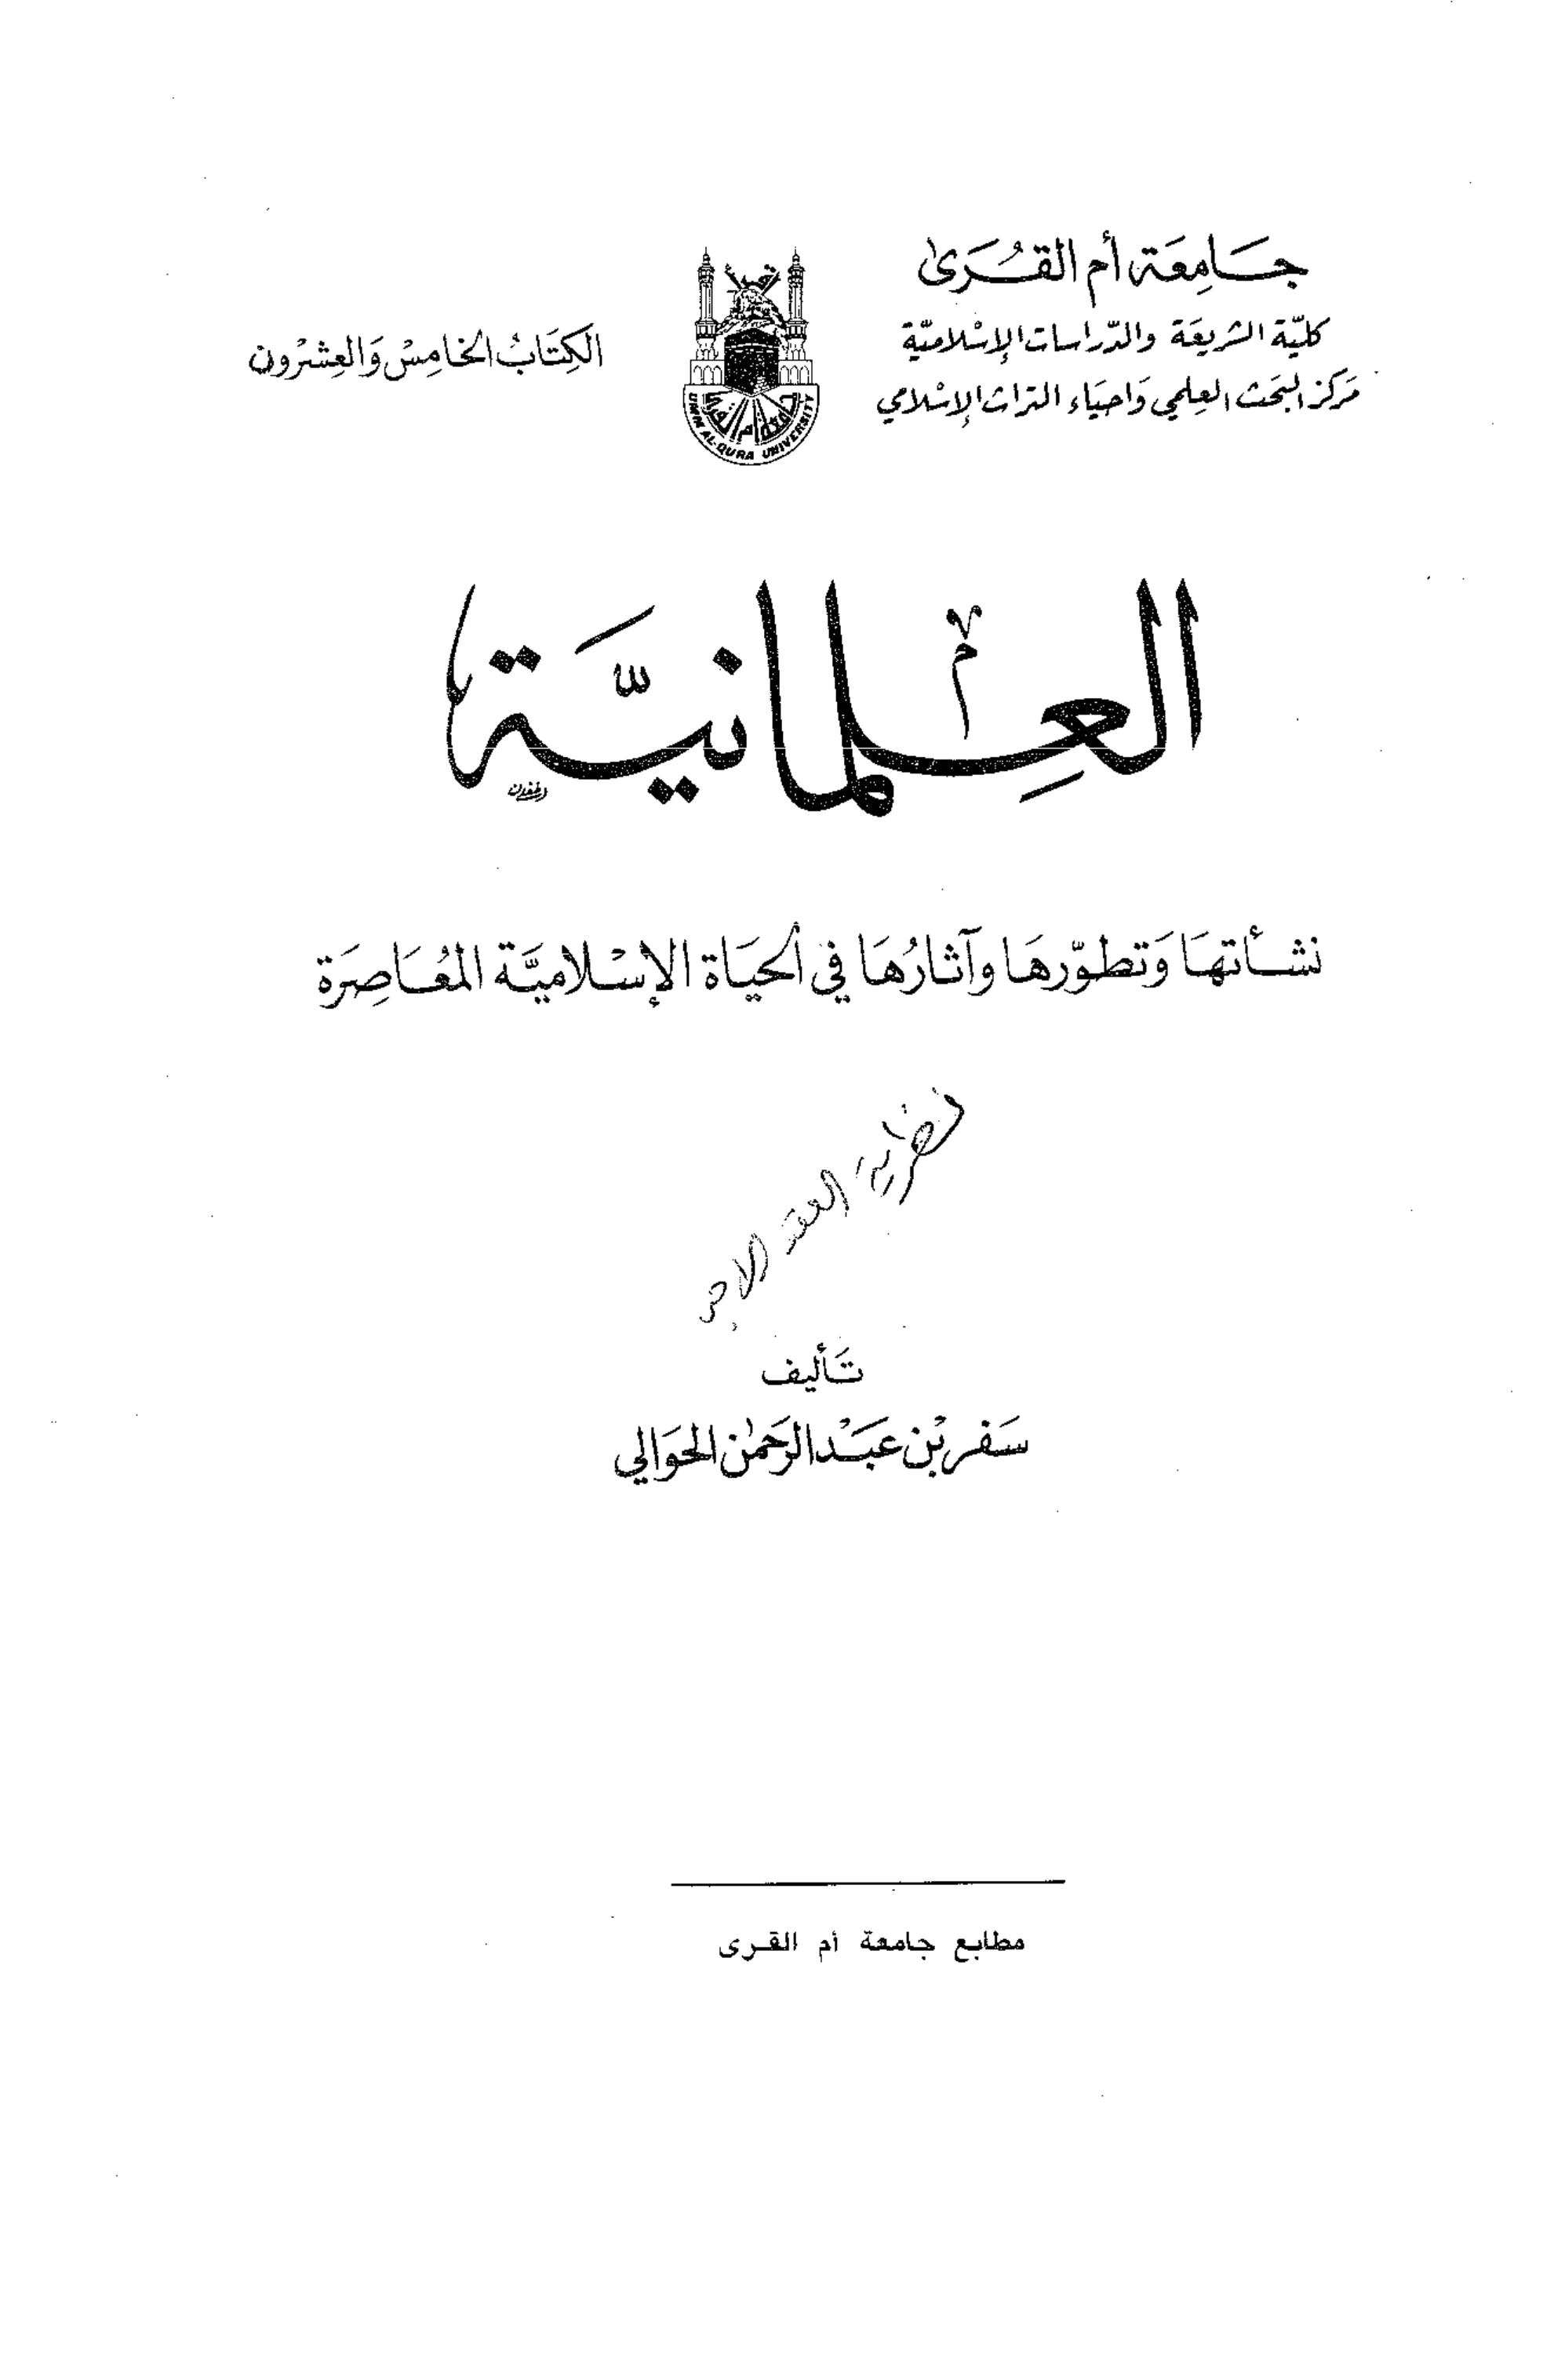 جَامِعَة أم القُرَىٰ
كليّة الشريعَة والدّراسات الإسْلاميّة
مَركز البَحث العِلمي وَاحيَاء التراث الإسْلامي
الكِتَابُ الخامِسْ وَالعِشْرون
UMM AL-QURA UNIVERSITY
العِلمانيَّة
نشأتهَا وَتطوّرهَا وآثارُهَا في الحيَاة الإسْلاميَّة المعُاصِرَة
نظرية العقد الاجـ
تَأليف
سَفر بْن عبَدْ الرحمٰن الحوَالي
مطابع جامعة أم القرى